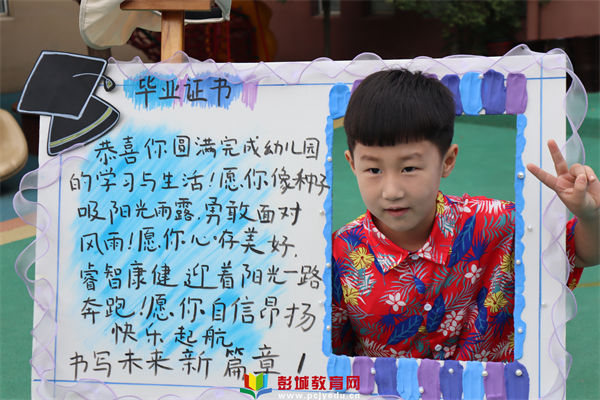 毕业证书
恭喜你圆满完成幼儿园
的学习与生活!愿你像种子
吸阳光雨露,勇敢面对
风雨!愿你心存美好,
睿智康健,迎着阳光一路
奔跑!愿你自信昂扬
快乐起航
书写未来新篇章!
彭城教育网
www.pcjyedu.cn